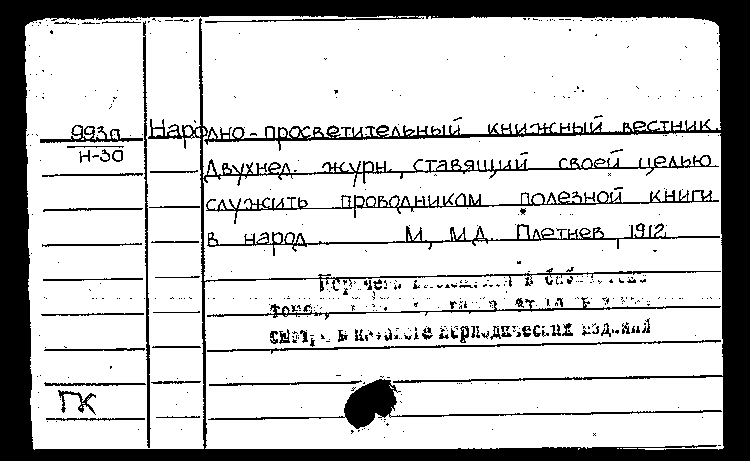 993а
Н-30
Народно-просветительный книжный вестник.
Двухнед. журн., ставящий своей целью
служить проводником полезной книги
в народ М, М.Д. Плетнев, 1912
Перечень в
томов,
смотри в каталоге периодических изданий
ГК